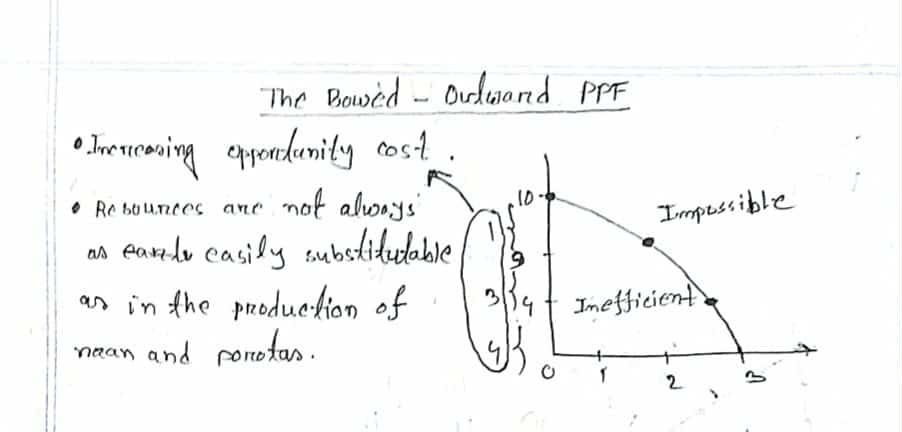 The Bowed - Outward PPF
• Increasing opportunity cost.
• Resources are not always
as easily substitutable
as in the production of
naan and porotas.
10
9
4
1
3
4
Impossible
Inefficient
0 1 2 3